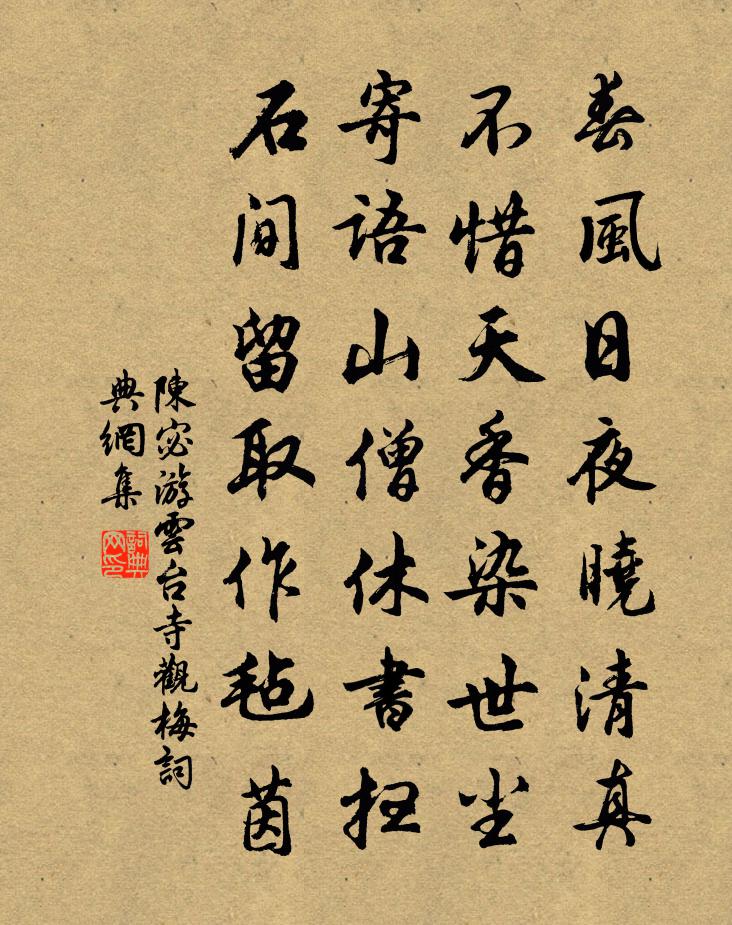 春風日夜曉清真
不惜天香染世尘
寄語山僧休書扫
石間留取作毡茵
陳宓游雲台寺觀梅詞
典網集
詞典
网印